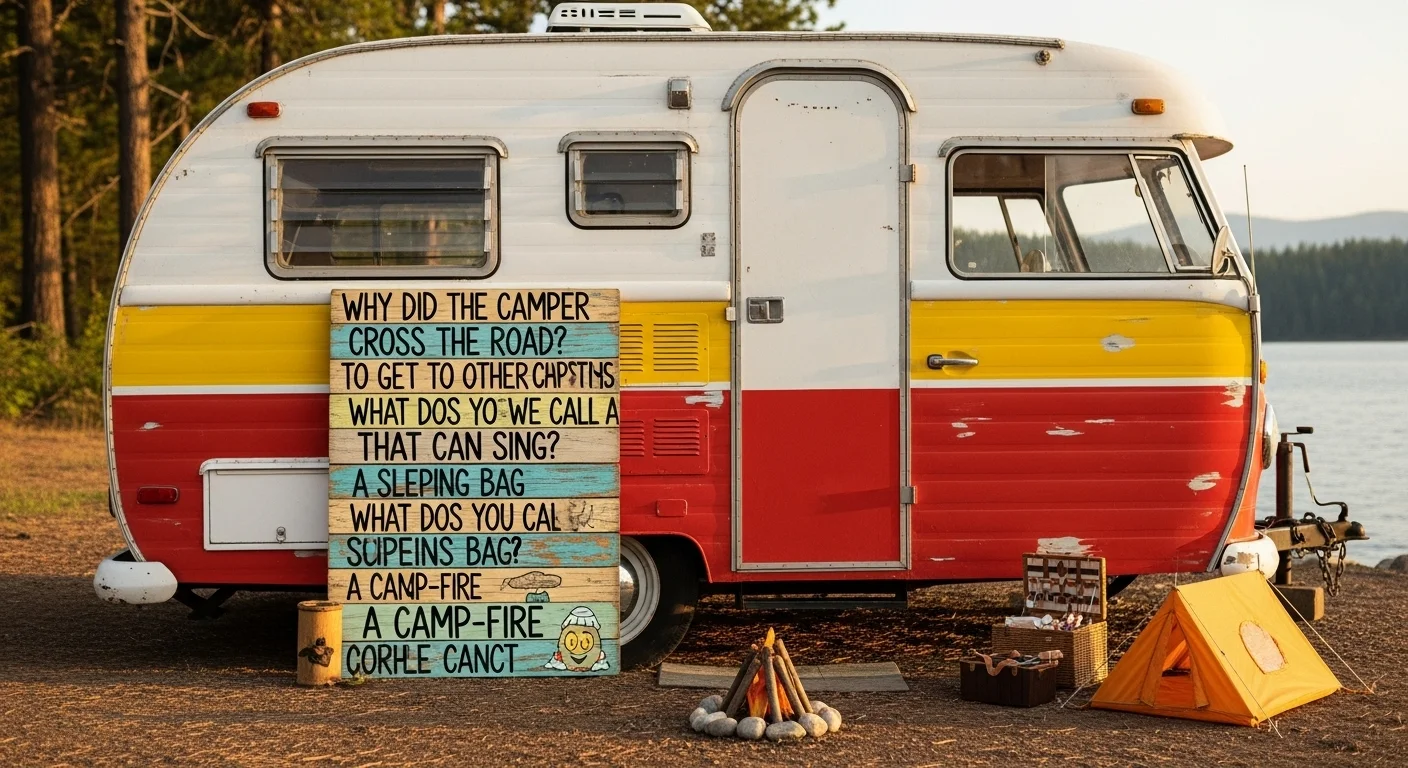 WHY DID THE CAMPER
CROSS THE ROAD?
TO GET TO OTHER CHPSTHS
WHAT DOS YO WE CALL A
THAT CAN SING?
A SLEPING BAG
WHAT DOS YOU CAL
SUPEINS BAG?
A CAMP-FIRE
A CAMP-FIRE
CORHLE CANCT